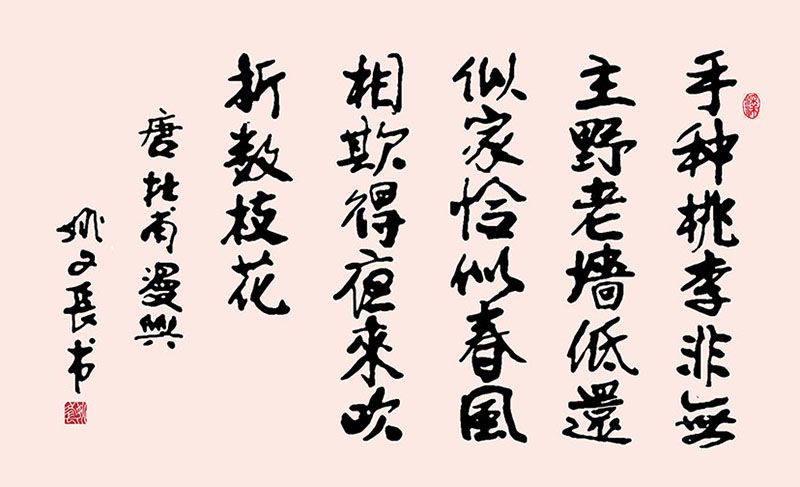 手种桃李非無
主野老墙低還
似家恰似春風
相欺得夜來吹
折数枝花
唐杜甫漫興
姚文長书